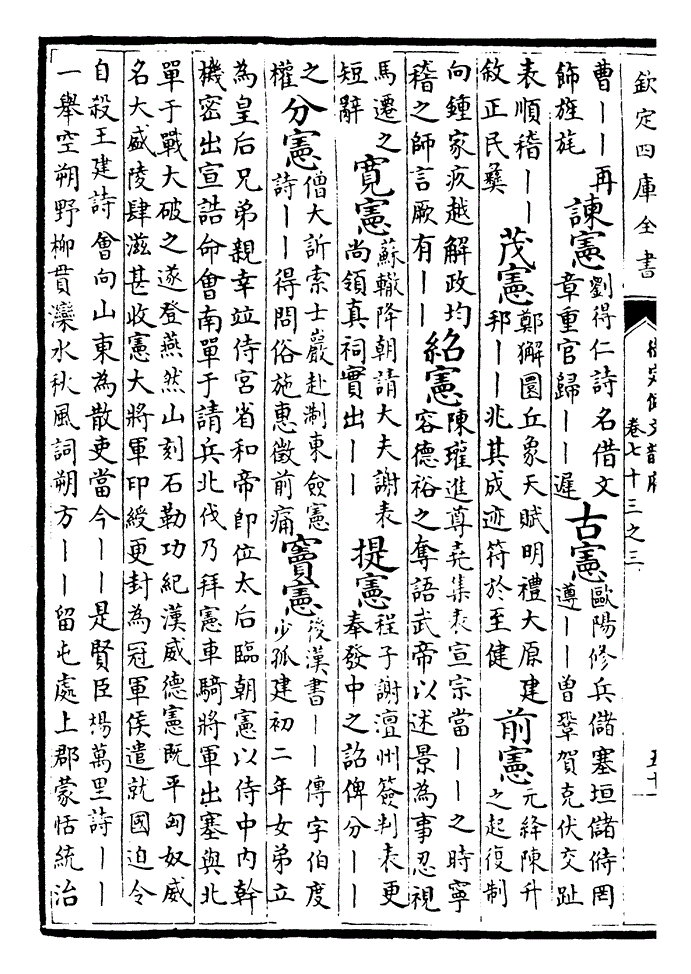 欽定四庫全書
御定佩文韻府
卷七十三之三
五十一
曹｜｜再
飾旌旄
諫憲
劉得仁詩名借文
章重官歸｜｜遲
古憲
歐陽修兵儲塞垣儲偫罔
遵｜｜曾鞏賀克伏交趾
表順稽｜｜
敘正民彝
茂憲
鄭獬圜丘象天賦明禮大原建
邦｜｜兆其成迹符於至健
前憲
元絳陳升
之起復制
向鍾家疚越解政均
稽之師言厥有｜｜
紹憲
陳瓘進尊堯集表宣宗當｜｜之時寧
容德裕之奪語武帝以述景為事忍視
馬遷之
短辭
寛憲
蘇轍降朝請大夫謝表
尚領真祠實出｜｜
提憲
程子謝澶州簽判表更
奉發中之詔俾分｜｜
之
權
分憲
僧大訢索士巖赴淛東僉憲
詩｜｜得問俗施惠徵前痛
竇憲
後漢書｜｜傳字伯度
少孤建初二年女弟立
為皇后兄弟親幸竝侍宮省和帝即位太后臨朝憲以侍中内幹
機密出宣誥命會南單于請兵北伐乃拜憲車騎將軍出塞與北
單于戰大破之遂登燕然山刻石勒功紀漢威德憲既平匈奴威
名大盛陵肆滋甚收憲大將軍印綬更封為冠軍侯遣就國迫令
自殺王建詩曾向山東為散吏當今｜｜是賢臣楊萬里詩｜｜
一舉空朔野柳貫灤水秋風詞朔方｜｜留屯處上郡蒙恬統治